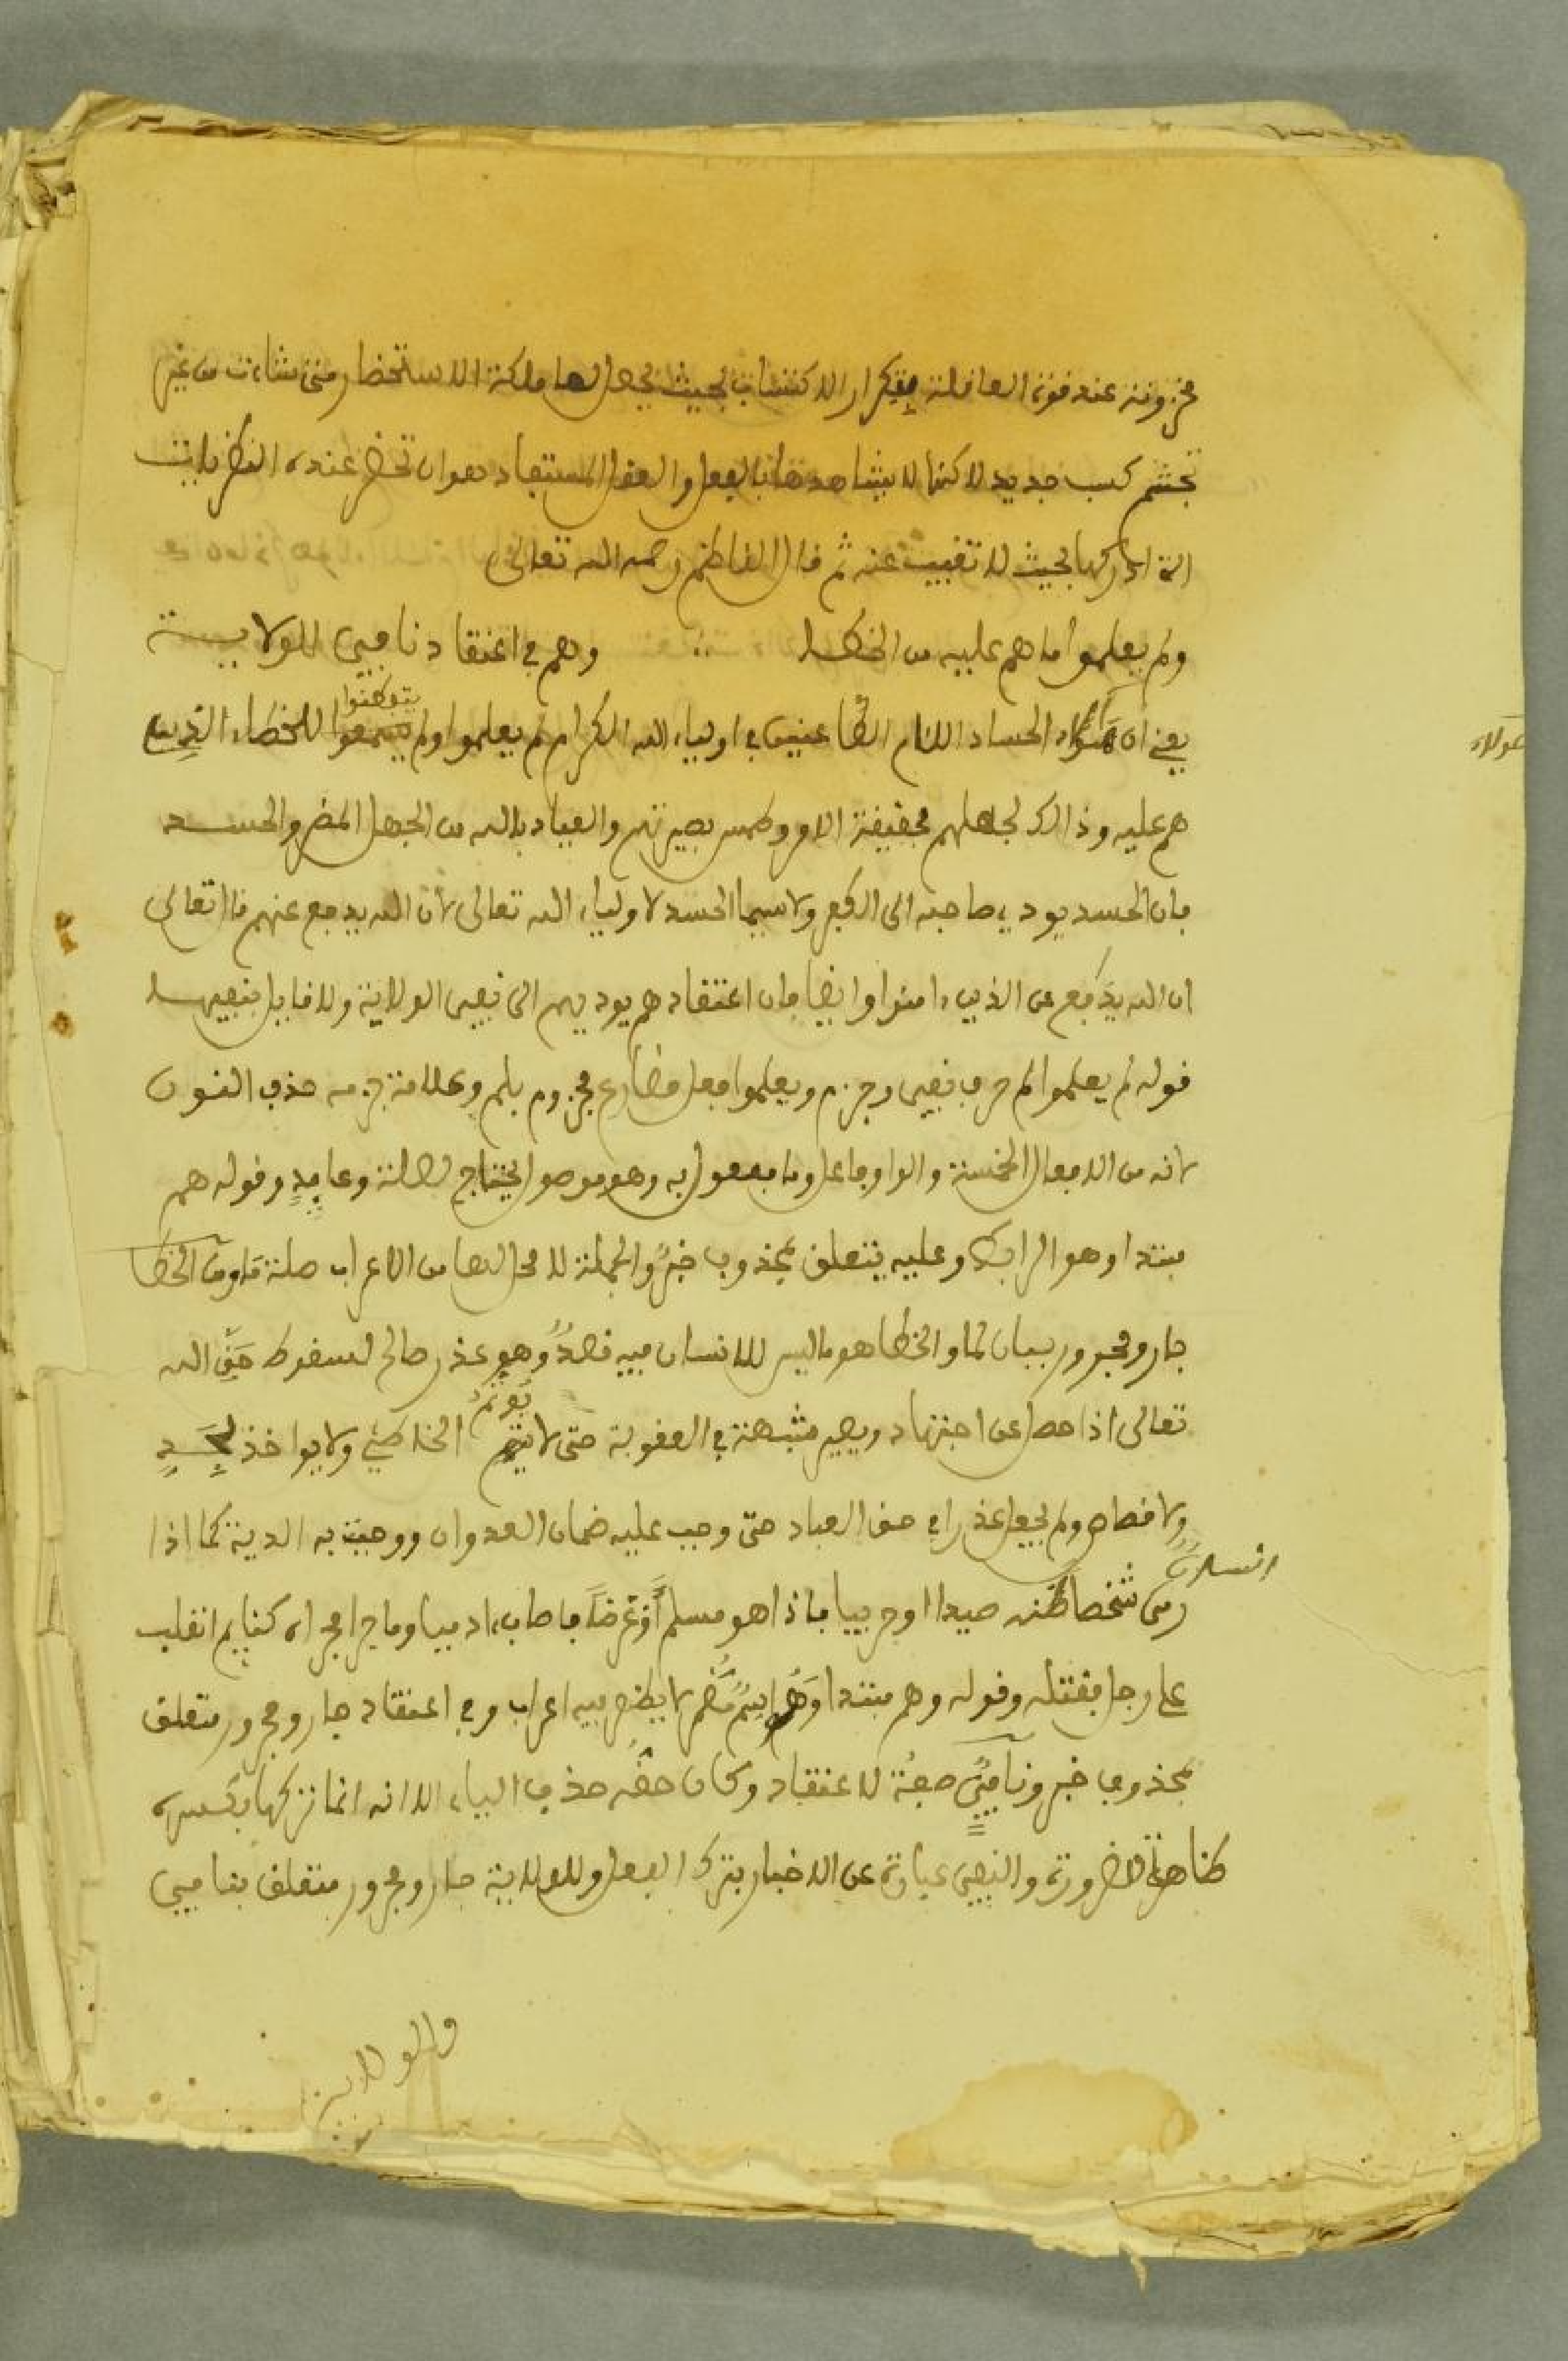 مخزونة عند قوة العاقلة بتكرار الاكتساب بحيث يحصل لها ملكة الاستحضار متى شاءت من غير
تجشم كسب جديد لاكنها لا يشاهدها بالفعل والعقل المستفاد هو ان تحضر عنده النظريات
التي ادركها بحيث لا تغيب عنه ثم قال الناظم رحمه الله تعالى
ولم يعلموا ما هم عليه من الخطا ∴ وهم في اعتقاد نافيي للولاية
يعني ان هؤلاء الحساد اللئام الطاعنين في اولياء الله الكرام لم يعلموا ولم يتفطنوا للخطاء الذي
هؤلاء
هم عليه وذالك لجهلهم بحقيقة الامر وطمس بصيرتهم والعياذ بالله من الجهل المضر والحسد
فان الحسد يودي صاحبه الى الكفر ولا سيما الحسد لاولياء الله تعالى لان الله يدفع عنهم قال تعالى
ان الله يدفع عن الذين ءامنوا وايضا فان اعتقادهم يوديهم الى نفي الولاية ولا قايل بنفيها
قوله لم يعلموا لم حرف نفي وجزم ويعلموا فعل مضارع مجزوم بلم وعلامة جزمه حذف النون
لانه من الافعال الخمسة والواو فاعل وما مفعول به وهو موصول يحتاج لصلة وعايد وقوله هم
مبتدا وهو الرابط وعليه يتعلق بمحذوف خبر والجملة لا محل لها من الاعراب صلة ما ومن الخطا
جار ومجرور بيان لما والخطا هو ما ليس للانسان فيه قصد وهو عذر صالح لسقوط حق الله
تعالى اذا حصل عن اجتهاد ويصير شبهة في العقوبة حتى لا يوثم الخاطئ ولا يواخذ بحد
ولا قصاص ولم يجعل عذرا في حق العباد حتى وجب عليه ضمان العدوان ووجبت به الدية كما اذا
رمى انسان شخصا ظنه صيدا او حربيا فاذا هو مسلم او غرضا فاصاب ءادميا وما جرا مجراه كنايم انقلب
على رجل فقتله وقوله وهم مبتدا وهو اسم مضمر لا يظهر فيه اعراب وفي اعتقاد جار ومجرور متعلق
بمحذوف خبر ونافيي صفة لاعتقاد وكان حقه حذف الياء الا انه انما تركها بكسرة
ظاهرة للضرورة والنفي عبارة عن الاخبار بترك الفعل وللولاية جار ومجرور متعلق بنافيي
والولاية